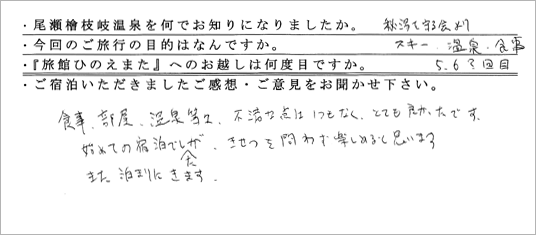 ・尾瀬檜枝岐温泉を何でお知りになりましたか。 秘湯を守る会より
・今回のご旅行の目的はなんですか。 スキー・温泉・食事
・『旅館ひのえまた』へのお越しは何度目ですか。 5、6回目
・ご宿泊いただきましたご感想・ご意見をお聞かせ下さい。
食事、部屋、温泉等々、不満な点は1つもなく、とても良かったです。
始めての宿泊でしたが、きせつを問わず楽しめると思います
また泊まりにきます。